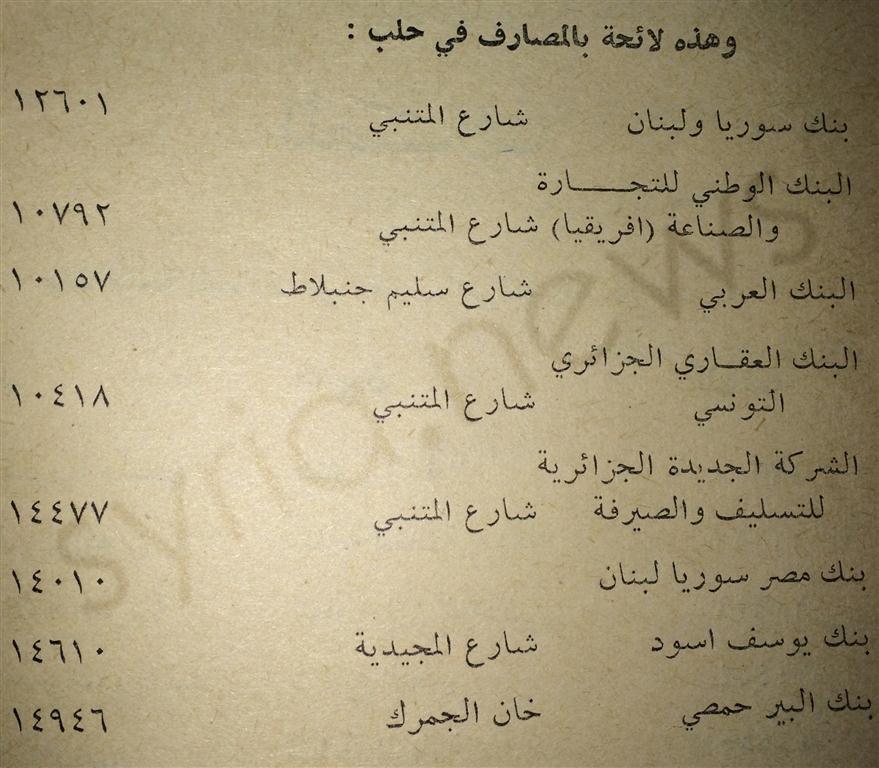 وهذه لائحة بالمصارف في حلب :
بنك سوريا ولبنان شارع المتنبي ١٢٦٠١
البنك الوطني للتجـــــارة
والصناعة (افريقيا) شارع المتنبي ١٠٧٩٢
البنك العربي شارع سليم جنبلاط ١٠١٥٧
البنك العقـاري الجزائري
التونسي شارع المتنبي ١٠٤١٨
الشركة الجديدة الجزائرية
للتسليف والصيرفة شارع المتنبي ١٤٤٧٧
بنك مصر سوريا لبنان ١٤٠١٠
بنك يوسف اسود شارع المجيدية ١٤٦١٠
بنك البير حمصي خان الجمرك ١٤٩٤٦